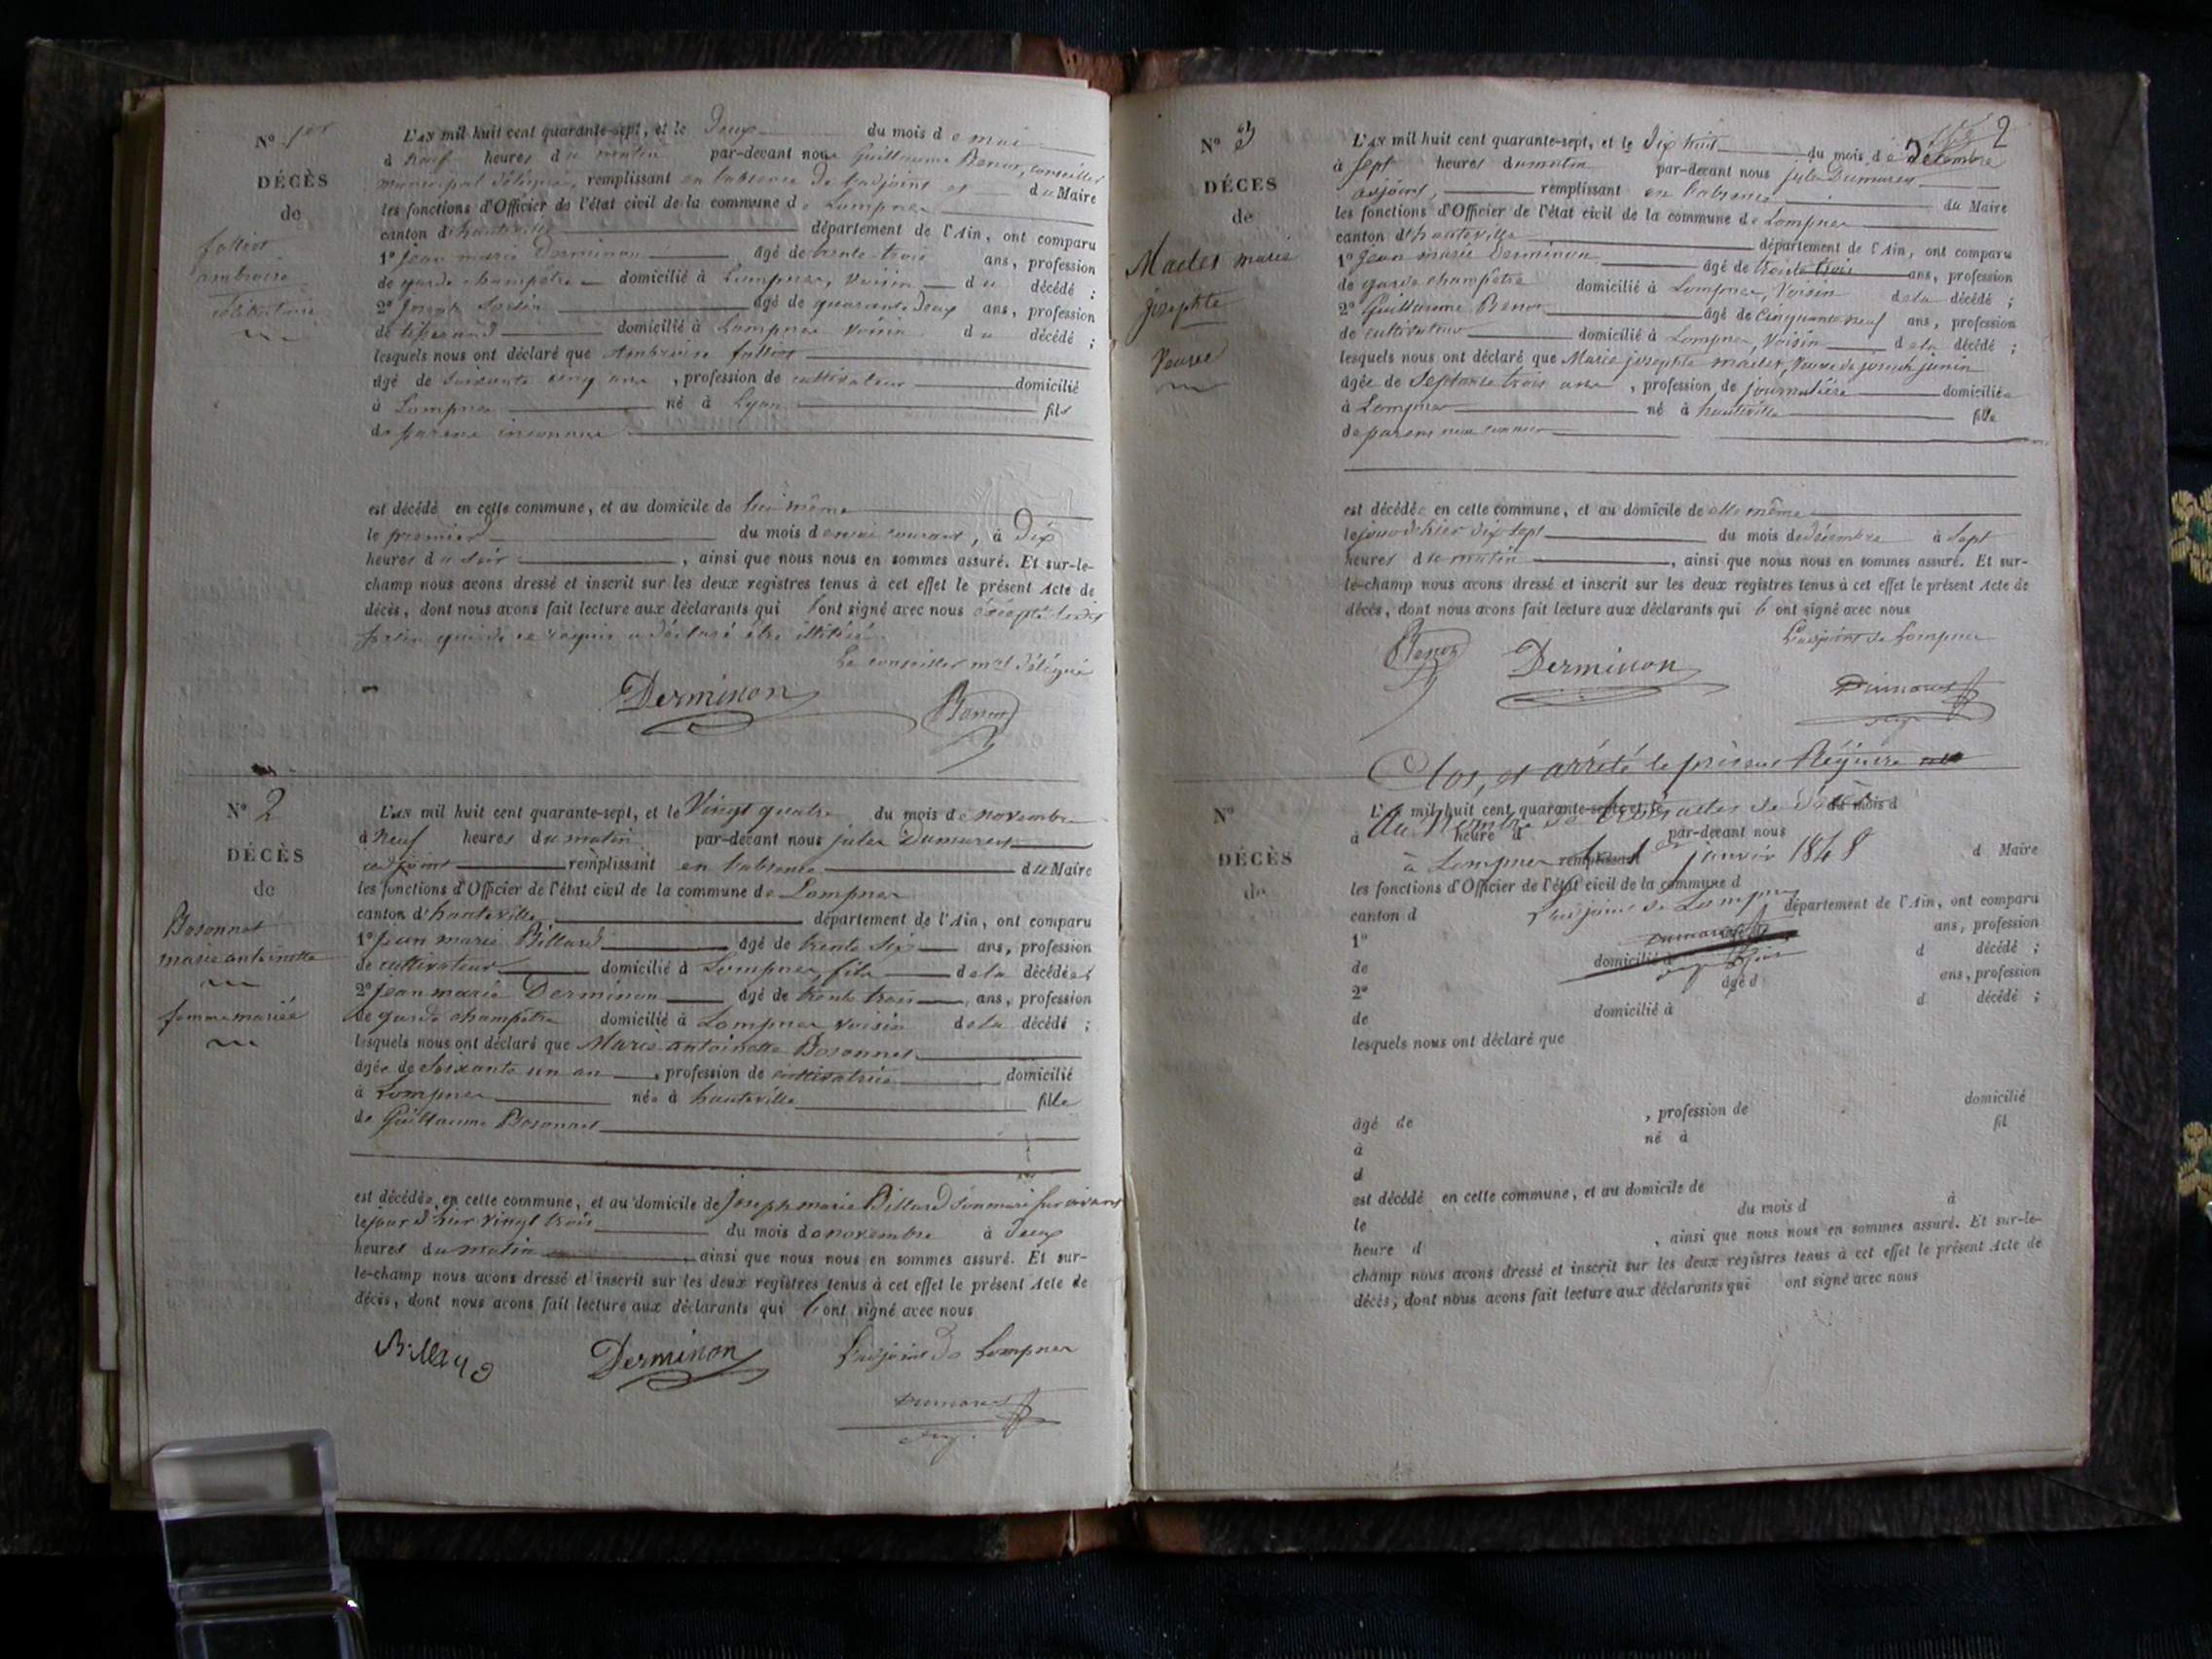 N° 1er
DÉCÈS
de
folliet
ambroise
célibataire
L'AN mil huit cent quarante-sept, et le Deux du mois de mai
à neuf heures du matin par-devant nous Guillaume Benon, conseiller
municipal délégué, remplissant en l'absence de l'adjoint et du Maire
les fonctions d'Officier de l'état civil de la commune de Lompnes
canton d'hauteville département de l'Ain, ont comparu
1° Jean marie Derminon âgé de trente trois ans, profession
de garde champêtre domicilié à Lompnes, Voisin du décédé ;
2° Joseph âgé de quarante Deux ans, profession
de tisserand domicilié à Lompnes Voisin du décédé ;
lesquels nous ont déclaré que Ambroise folliet
âgé de Soixante cinq ans, profession de cultivateur domicilié
à Lompnes né à Lyon fils
de parens inconnus
est décédé en cette commune, et au domicile de lui même
le premier du mois de mai courant, à Dix
heures du soir, ainsi que nous nous en sommes assuré. Et sur-le-
champ nous avons dressé et inscrit sur les deux registres tenus à cet effet le présent Acte de
décès, dont nous avons fait lecture aux déclarants qui l'ont signé avec nous excepté ledit
qui de ce requis a déclaré être illitéré.
Le conseiller mal délégué
Derminon Benon
N° 2
DÉCÈS
de
Bosonnet
marie antoinette
femme mariée
L'AN mil huit cent quarante-sept, et le Vingt quatre du mois de novembre
à neuf heures du matin par-devant nous jules Dumarest
adjoint remplissant en l'absence du Maire
les fonctions d'Officier de l'état civil de la commune de Lompnes
canton d'hauteville département de l'Ain, ont comparu
1° Jean marie Billard âgé de trente six ans, profession
de cultivateur domicilié à Lompnes, fils de la décédée
2° Jean marie Derminon âgé de trente trois ans, profession
de garde champêtre domicilié à Lompnes Voisin de la décédé ;
lesquels nous ont déclaré que Marie antoinette Bosonnet
âgée de Soixante un an, profession de cultivatrice domicilié
à Lompnes née à hauteville fille
de Guillaume Bosonnet
est décédée en cette commune, et au domicile de Joseph marie Billard son mari survivant
le jour d'hier vingt trois du mois de novembre à deux
heures du matin, ainsi que nous nous en sommes assuré. Et sur-
le-champ nous avons dressé et inscrit sur les deux registres tenus à cet effet le présent Acte de
décès, dont nous avons fait lecture aux déclarants qui l'ont signé avec nous
Billard Derminon L'adjoint de Lompnes
Dumarest
2
N° 3
DÉCES
de
Maclet marie
josephte
Veuve
L'AN mil huit cent quarante-sept, et le Dix huit du mois de Décembre
à Sept heures du matin par-devant nous jules Dumarest
adjoint, remplissant en l'absence du Maire
les fonctions d'Officier de l'état civil de la commune de Lompnes
canton d'hauteville département de l'Ain, ont comparu
1° Jean marie Derminon âgé de trente trois ans, profession
de garde champêtre domicilié à Lompnes, Voisin de la décédé ;
2° Guillaume Benon âgé de cinquante neuf ans, profession
de cultivateur domicilié à Lompnes, Voisin de la décédé ;
lesquels nous ont déclaré que Marie josephte maclet, Veuve de joseph janin
âgée de Septante trois ans, profession de journalière domiciliée
à Lompnes né à hauteville fille
de parens
est décédée en cette commune, et au domicile de elle même
le jour d'hier dix sept du mois de décembre à sept
heures du matin, ainsi que nous nous en sommes assuré. Et sur-
le-champ nous avons dressé et inscrit sur les deux registres tenus à cet effet le présent Acte de
décès, dont nous avons fait lecture aux déclarants qui l'ont signé avec nous
L'adjoint de Lompnes
Benon Derminon Dumarest
Clos, et arrêté le présent Régistre
Au Nombre de trois actes de décès
à Lompnes le 1er janvier 1848
L'adjoint de Lompnes
Dumarest
N°
DÉCÈS
de
L'AN mil huit cent quarante-sept, et le du mois d
à heure d par-devant nous
remplissant d Maire
les fonctions d'Officier de l'état civil de la commune d
canton d département de l'Ain, ont comparu
1° ans, profession
de domicilié à d décédé ;
2° âgé d ans, profession
de domicilié à d décédé ;
lesquels nous ont déclaré que
âgé de , profession de domicilié
à né à fil
d
est décédé en cette commune, et au domicile de
le du mois d à
heure d , ainsi que nous nous en sommes assuré. Et sur-le-
champ nous avons dressé et inscrit sur les deux registres tenus à cet effet le présent Acte de
décès, dont nous avons fait lecture aux déclarants qui ont signé avec nous